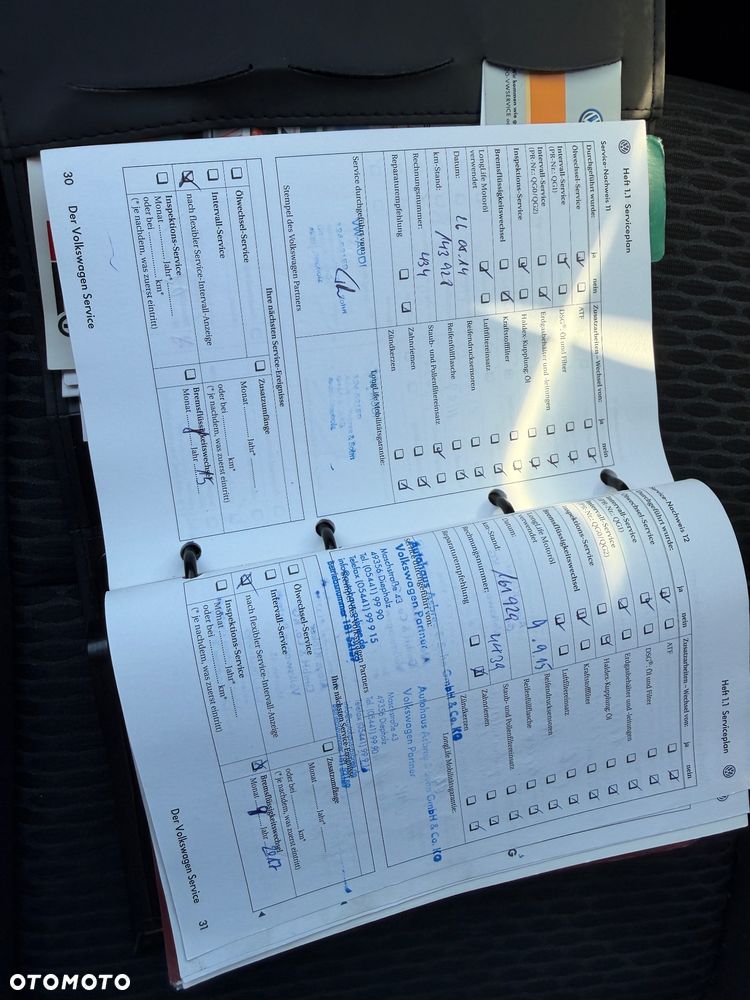 Heft 1.1 Serviceplan
Service-Nachweis 11
Durchgeführt wurde:
ja
nein
Zusatzarbeiten – Wechsel von:
ja
nein
Ölwechsel-Service
ATF
Intervall-Service
(PR-Nr.: QG1)
DSG®: Öl und Filter
Intervall-Service
(PR-Nr.: QG0/QG2)
Erdgasbehälter und -leitungen
Inspektions-Service
Haldex-Kupplung: Öl
Bremsflüssigkeitswechsel
Kraftstofffilter
LongLife Motoröl
verwendet
Luftfiltereinsatz
Datum:
Reifendrucksensoren
km-Stand:
143 928
Reifenfüllflasche
Rechnungsnummer:
434
Staub- und Pollenfiltereinsatz
Zahnriemen
Reparaturempfehlung
Zündkerzen
Service durchgeführt von:
LongLife Mobilitätsgarantie:
Stempel des Volkswagen Partners
Ihre nächsten Service-Ereignisse
Ölwechsel-Service
Zusatzumfänge
Intervall-Service
Monat .......... Jahr*
nach flexibler Service-Intervall-Anzeige
oder bei .......... km*
(* je nachdem, was zuerst eintritt)
Inspektions-Service
Monat .......... Jahr*
Bremsflüssigkeitswechsel
oder bei .......... km*
(* je nachdem, was zuerst eintritt)
30
Der Volkswagen Service
Heft 1.1 Serviceplan
Service-Nachweis 12
Durchgeführt wurde:
ja
nein
Zusatzarbeiten – Wechsel von:
ja
nein
Ölwechsel-Service
ATF
Intervall-Service
(PR-Nr.: QG1)
DSG®: Öl und Filter
Intervall-Service
(PR-Nr.: QG0/QG2)
Erdgasbehälter und -leitungen
Inspektions-Service
Haldex-Kupplung: Öl
Bremsflüssigkeitswechsel
Kraftstofffilter
LongLife Motoröl
verwendet
Luftfiltereinsatz
Datum:
Reifendrucksensoren
km-Stand:
161929
Reifenfüllflasche
Rechnungsnummer:
Staub- und Pollenfiltereinsatz
Zahnriemen
Reparaturempfehlung
Zündkerzen
LongLife Mobilitätsgarantie:
Autohaus
GmbH & Co. KG
Volkswagen Partner
Maschstraße 43
49356 Diepholz
Tel. (05441) 99 90
Telefax (05441) 99 9 15
Autohaus
GmbH & Co. KG
Volkswagen Partner
Maschstraße 43
49356 Diepholz
Tel. (05441) 99 90
Ihre nächsten Service-Ereignisse
Ölwechsel-Service
Zusatzumfänge
Intervall-Service
Monat .......... Jahr*
nach flexibler Service-Intervall-Anzeige
oder bei .......... km*
(* je nachdem, was zuerst eintritt)
Inspektions-Service
Monat .......... Jahr*
Bremsflüssigkeitswechsel
oder bei .......... km*
Monat 9 Jahr 2017
(* je nachdem, was zuerst eintritt)
Der Volkswagen Service
31
OTOMOTO